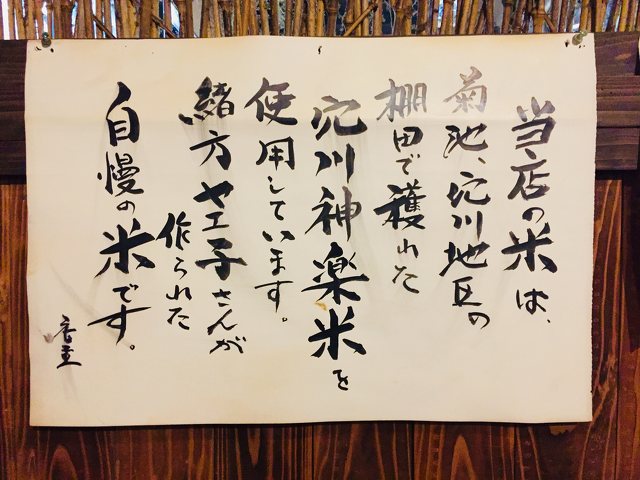 当店の米は、
菊池、穴川地区の
棚田で穫れた
穴川神楽米を
使用しています。
緒方ヤエ子さんが
作られた
自慢の米です。